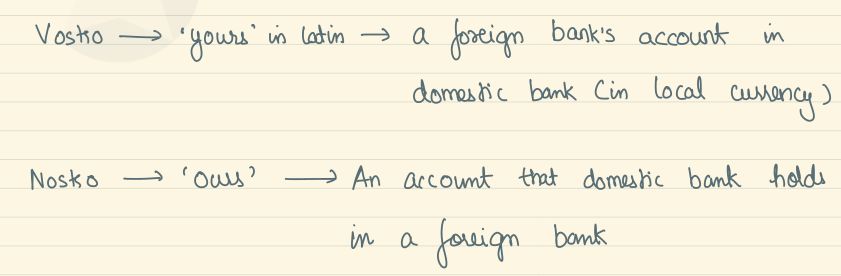 Vostro → 'yours' in latin → a foreign bank's account in
domestic bank (in local currency)
Nostro → 'ours' → An account that domestic bank holds
in a foreign bank